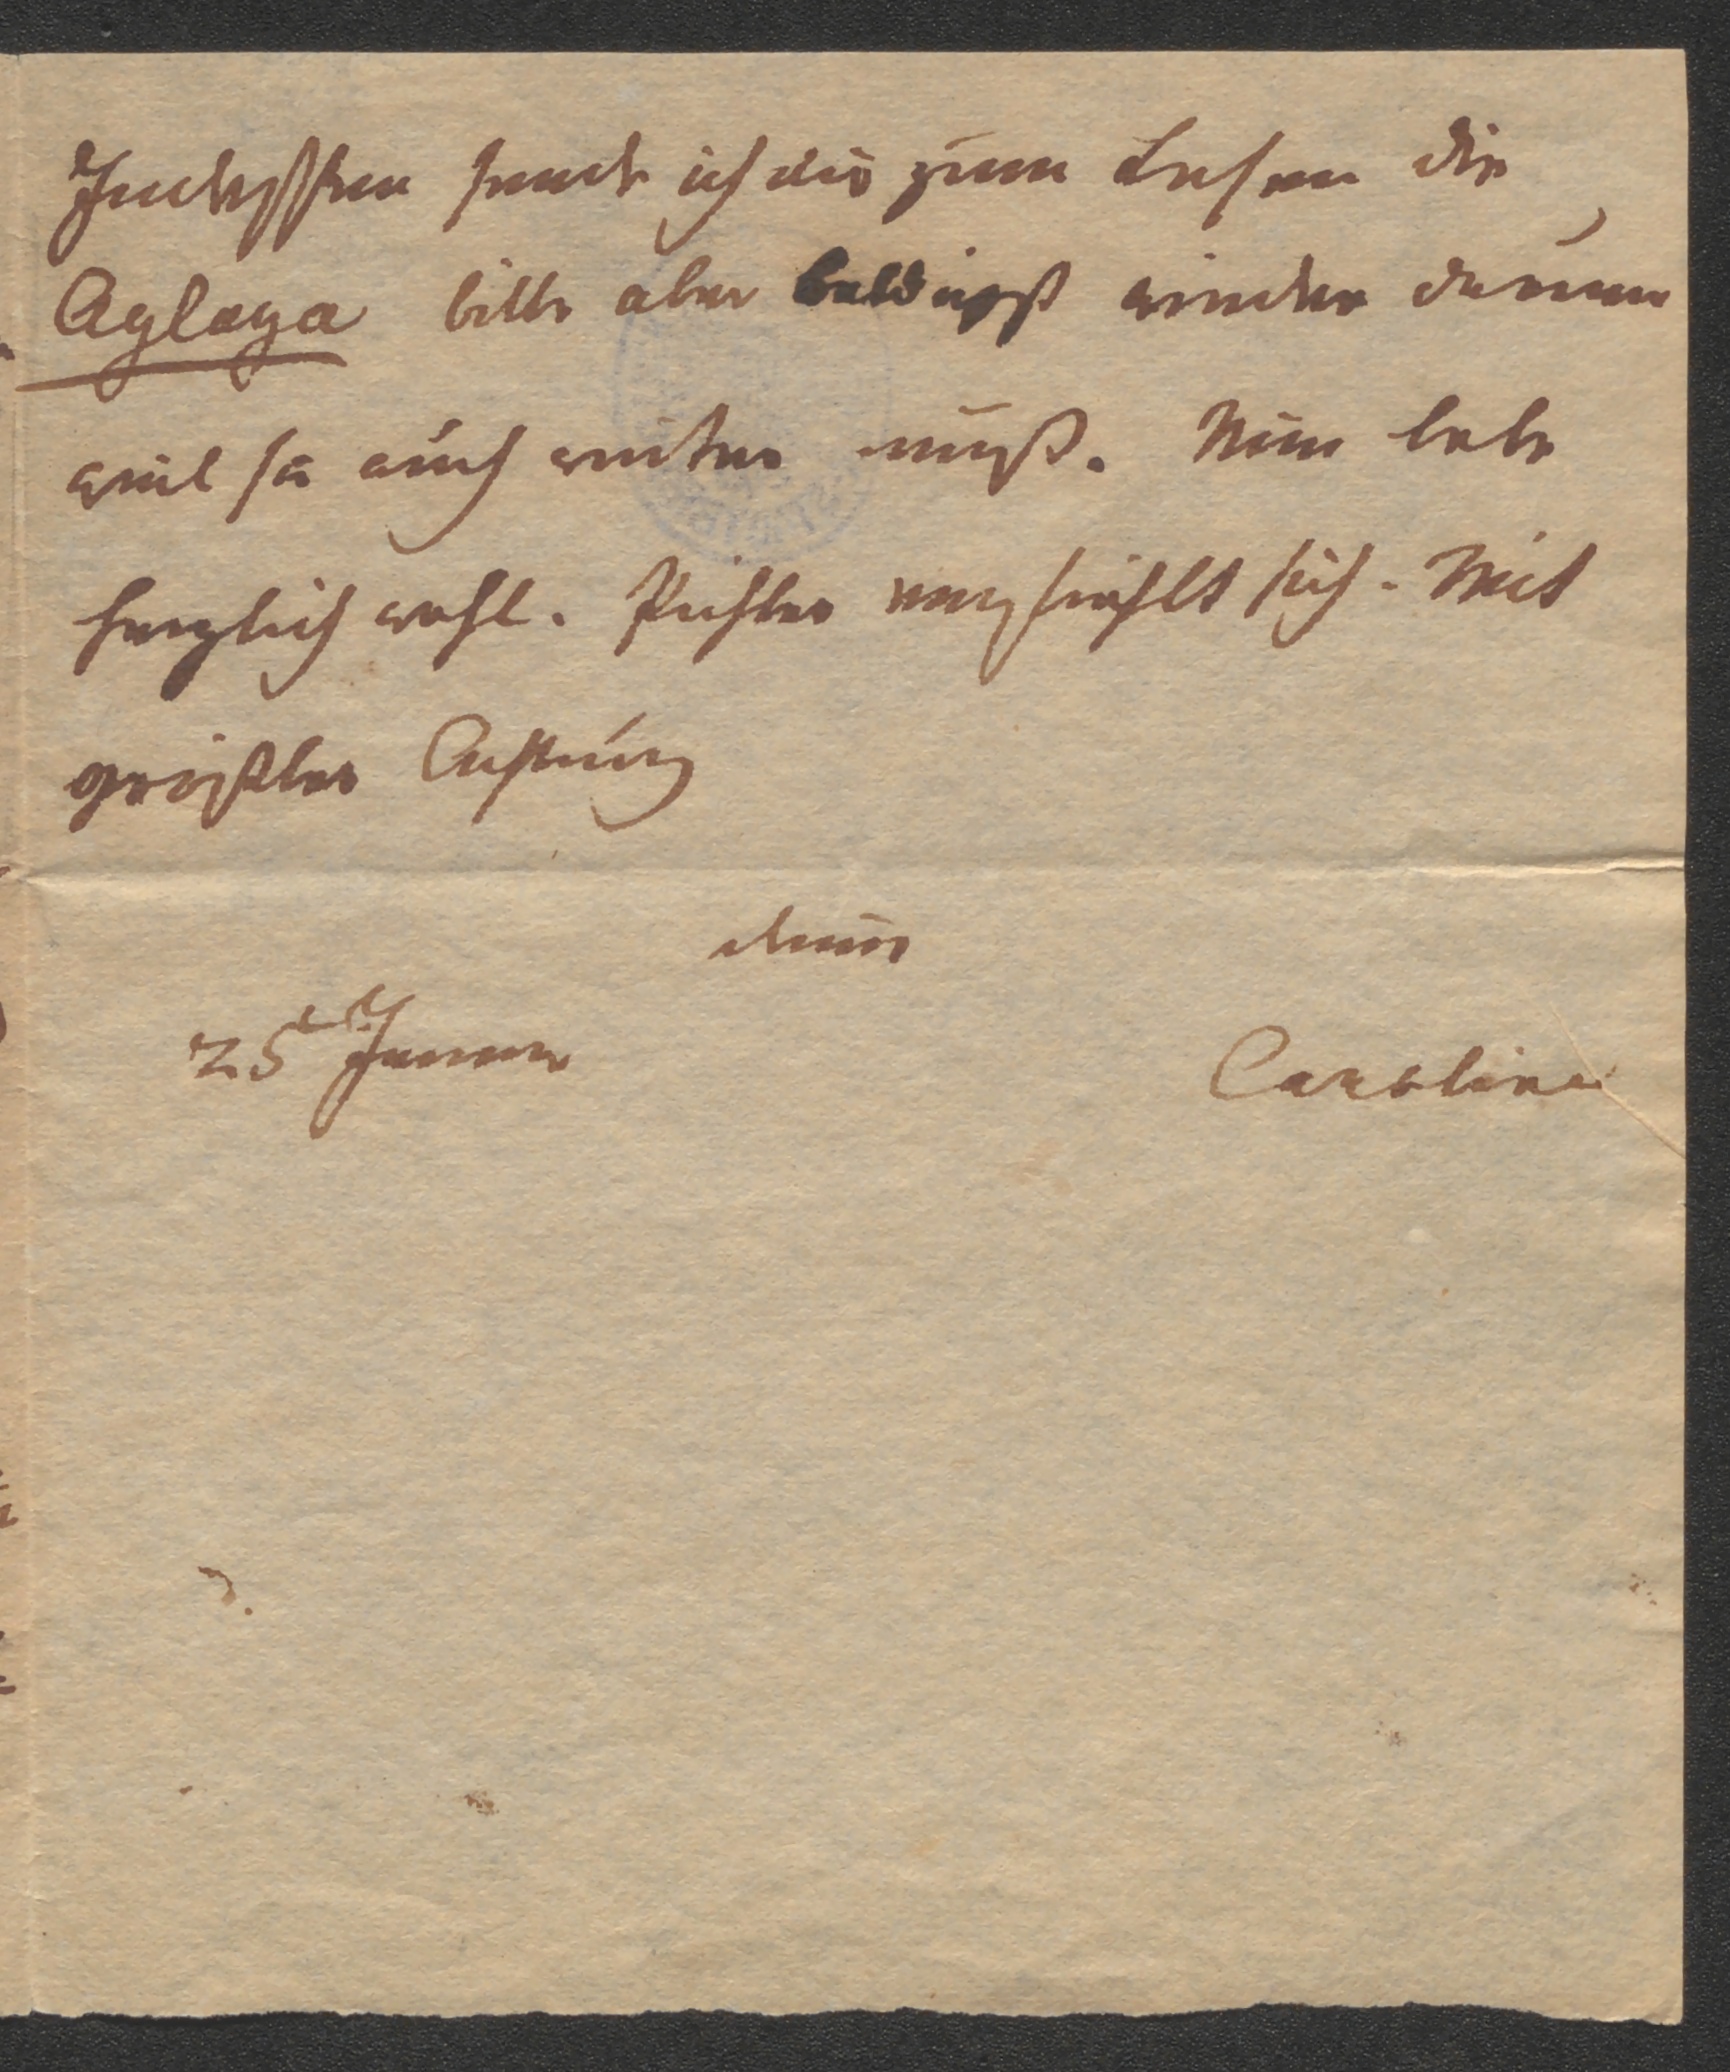 Indeßen sende ich dir zum Lesen die
Aglaya bitte aber baldigst wieder darum,
weil sie auch weiter muß. Nun lebe
herzlich wohl. Pichler empfiehlt sich. Mit
größter Achtung
deine
25t Jenner
Caroline